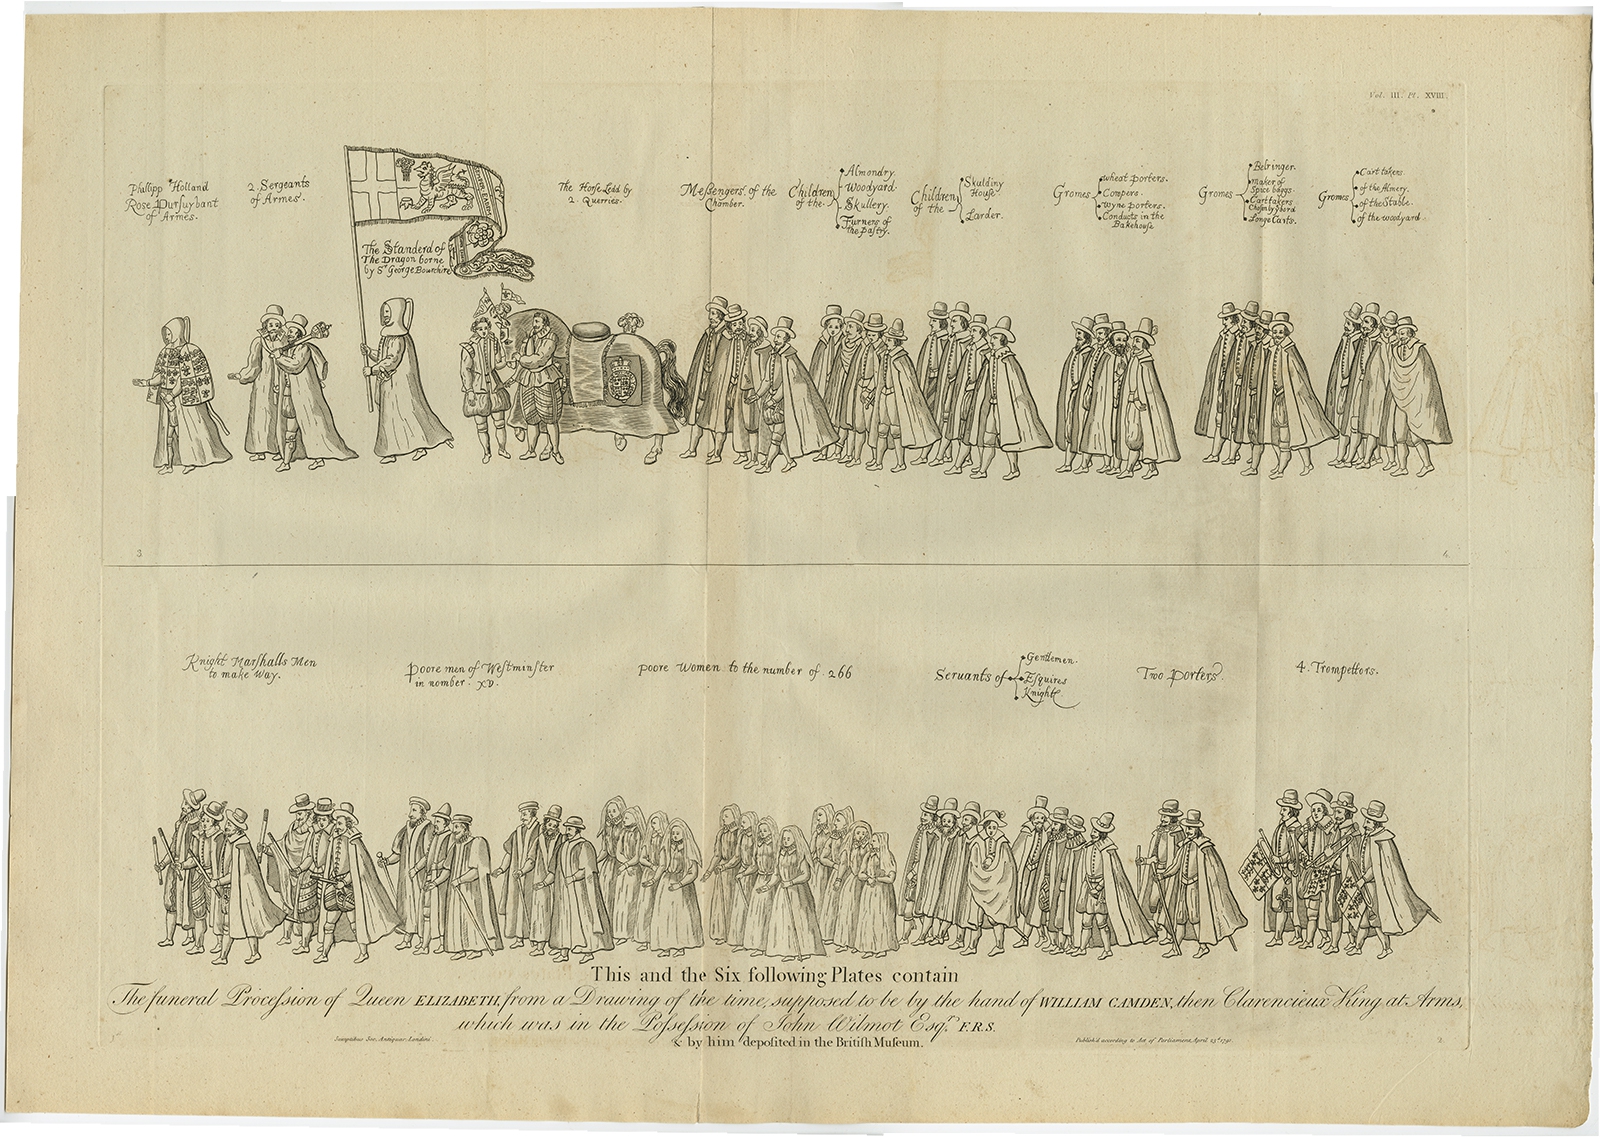 Vol. III. Pl. XVIII.
Phillipp Holland
Rose Pursuybant
of Armes.
2 Sergeants
of Armes.
The Standerd of
The Dragon borne
by Sr George Bourchire
The Horse Ledd by
2 Querries.
Meſsengers of the
Chamber.
Children
of the
Almondry.
Woodyard.
Skullery.
Furners of
the Pastry.
Children
of the
Skaldiny
House.
Larder.
Gromes
wheat porters.
Compers.
wyne porters.
Conducts in the
Bakehouse
Gromes
Belringer.
maker of
Spice baggs.
Cart takers
Longe Carts.
Gromes
Cart takers.
of the Almery.
of the Stable.
of the woodyard.
3
4
Knight Marshalls Men
to make Way.
Poore men of Weſtminſter
in nomber. XV.
poore Women to the number of 266
Seruants of
Gentlemen.
Eſquires
Knightes
Two Porters.
4. Trompetters.
This and the Six following Plates contain
The funeral Proceſsion of Queen ELIZABETH, from a Drawing of the time, supposed to be by the hand of WILLIAM CAMDEN, then Clarencieux King at Arms,
which was in the Poſseſsion of John Wilmot Esqr. F.R.S.
& by him depoſited in the Britiſh Muſeum.
Sumptibus Soc. Antiquar. Londini.
Publish'd according to Act of Parliament, April 23d 1791.
2